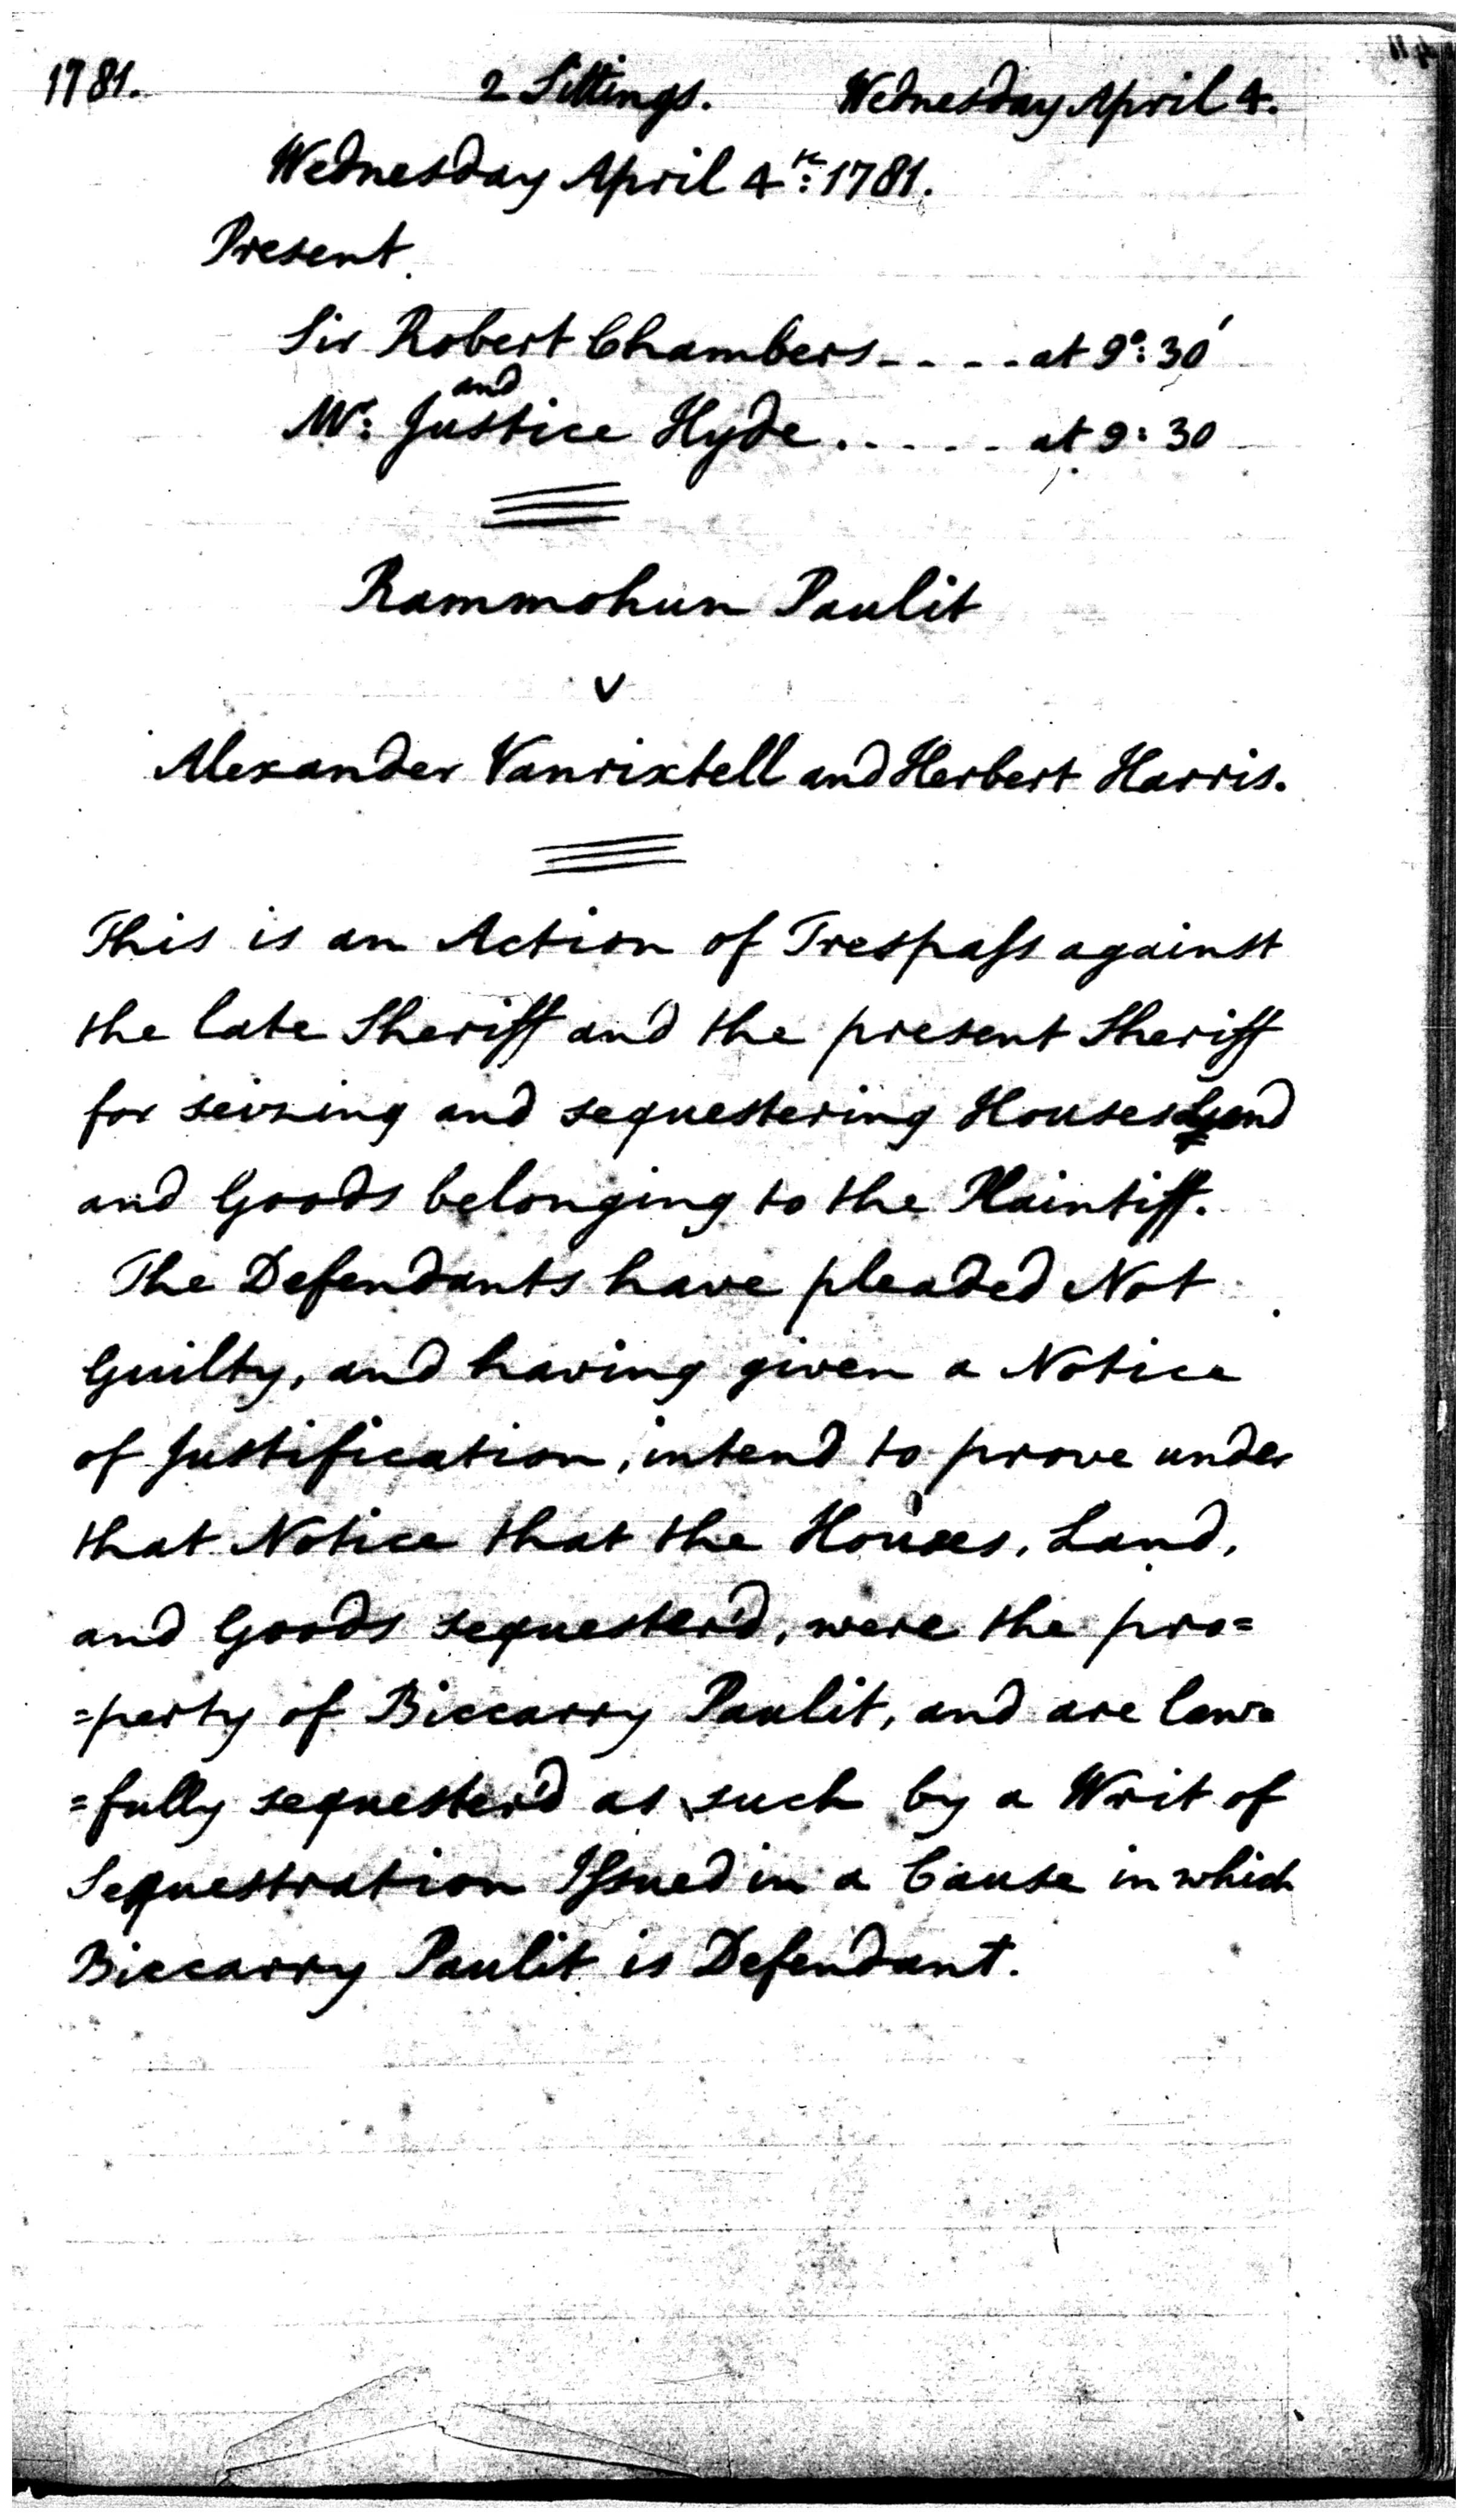 1781. 2 Sittings. Wednesday April 4.
Wednesday April 4th: 1781.
Present.
Sir Robert Chambers - - - - at 9°: 30'
and
Mr: Justice Hyde . - - - - at 9: 30
Rammohun Paulit
v
Alexander Vanrixtell and Herbert Harris.
This is an Action of Trespaſs against
the late Sheriff and the present Sheriff
for seizing and sequestering Houses Land
and Goods belonging to the Plaintiff.
The Defendants have pleaded Not
Guilty, and having given a Notice
of Justification, intend to prove under
that Notice that the Houses, Land,
and Goods sequester'd, were the pro=
=perty of Biccarry Paulit, and are law=
=fully sequester'd as such by a Writ of
Sequestration Iſsued in a Cause in which
Biccarry Paulit is Defendant.